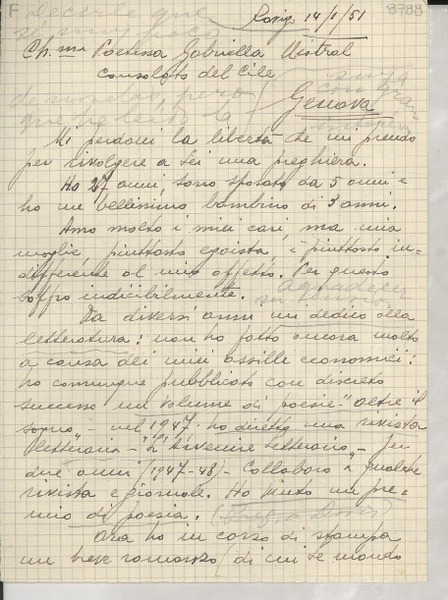 F
3788
Decirle que
Rovigo 14/1/51
Ch.ma Poetessa Gabriella Mistral
Consolato del Cile
Genova
Mi perdoni la libertà che mi prendo
per rivolgere a Lei una preghiera.
Ho 27 anni, sono sposato da 5 anni e
ho un bellissimo bambino di 3 anni.
Amo molto i miei cari, ma mia
moglie, piuttosto egoista, è piuttosto in-
differente al mio affetto. Per questo
soffro indicibilmente.
Da diversi anni mi dedico alla
letteratura: non ho fatto ancora molto
a causa dei miei assilli economici:
ho comunque pubblicato con discreto
successo un volume di poesie "Oltre il
sogno" - nel 1947 ho diretto una rivista
letteraria - "L'Avvenire letterario" - per
due anni (1947-48) - Collaboro a qualche
rivista e giornale. Ho vinto un pre-
mio di poesia.
Ora ho in corso di stampa
un breve romanzo (di cui Le mando